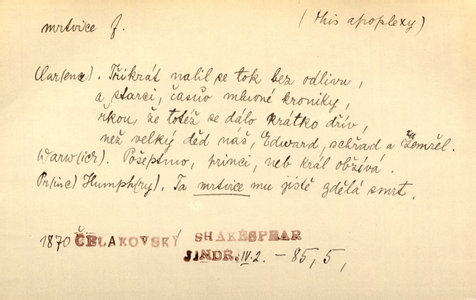 mrtvice f. (this apoplexy)
(Clarence). Třikrát nalil se tok bez odlivu,
a starci, časův mluvné kroniky,
řkou, že totéž se dálo krátko dřív,
než velký děd náš, Edward, schřad a zemřel.
(Warw(ick). Pošeptmo, princi, neb král obžívá.
Pr(inc) Humph(ry). Ta mrtvice mu jistě zdělá smrt.
1870 ČELAKOVSKÝ SHAKESPEAR
JINDŘ. IV. 2. – 85, 5,